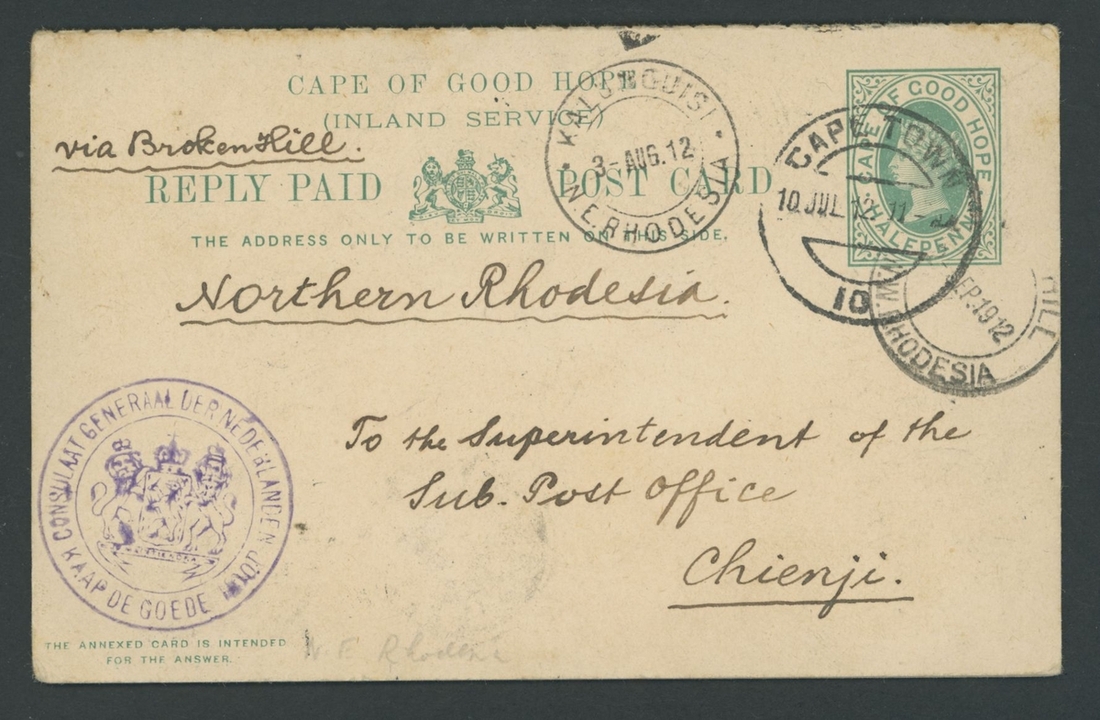 CAPE OF GOOD HOPE
(INLAND SERVICE)
via Broken Hill.
REPLY PAID POST CARD
THE ADDRESS ONLY TO BE WRITTEN ON THIS SIDE.
KALUNGUISI
3-AUG.12
N.E.RHODESIA
CAPE TOWN
10 JUL 12 11-
10
CAPE OF GOOD HOPE
HALFPENNY
HILL
EP.1912
N.W. RHODESIA
Northern Rhodesia.
To the Superintendent of the
Sub. Post Office
Chienji.
CONSULAAT GENERAAL DER NEDERLANDEN VOOR
KAAP DE GOEDE HOOP
THE ANNEXED CARD IS INTENDED
FOR THE ANSWER.
N E Rhodesia